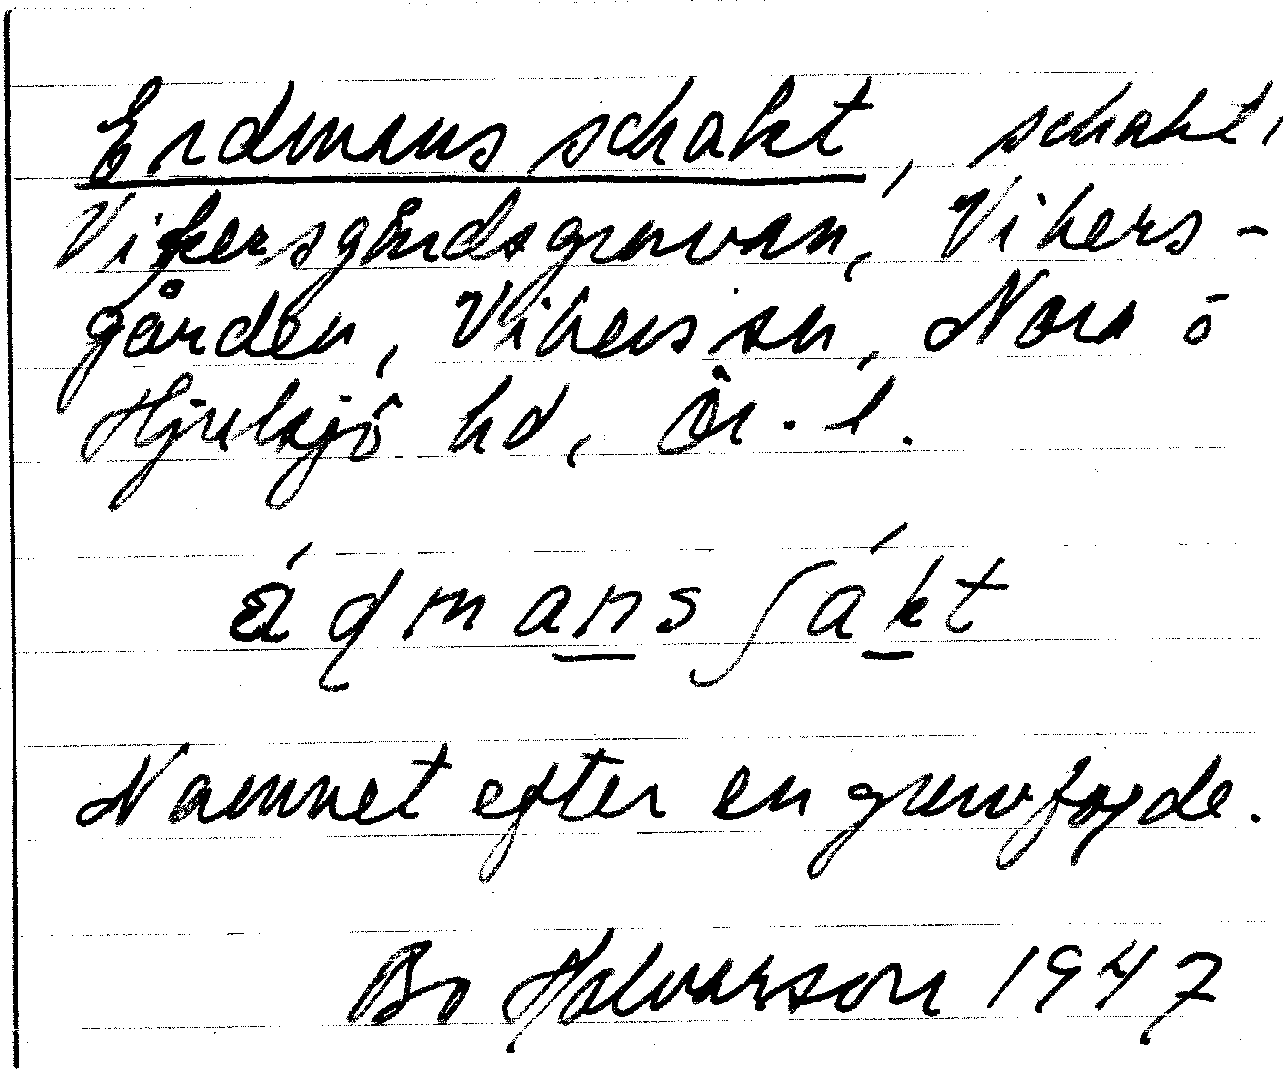 Erdmans schakt, schakt i
Vikersgårdsgruvan, Vikers-
gården, Vikers sn, Nora o
Hjulsjö hd, Ör. l.
ædmans ʃakt
Namnet efter en gruvfogde.
Bo Halvarson 1947